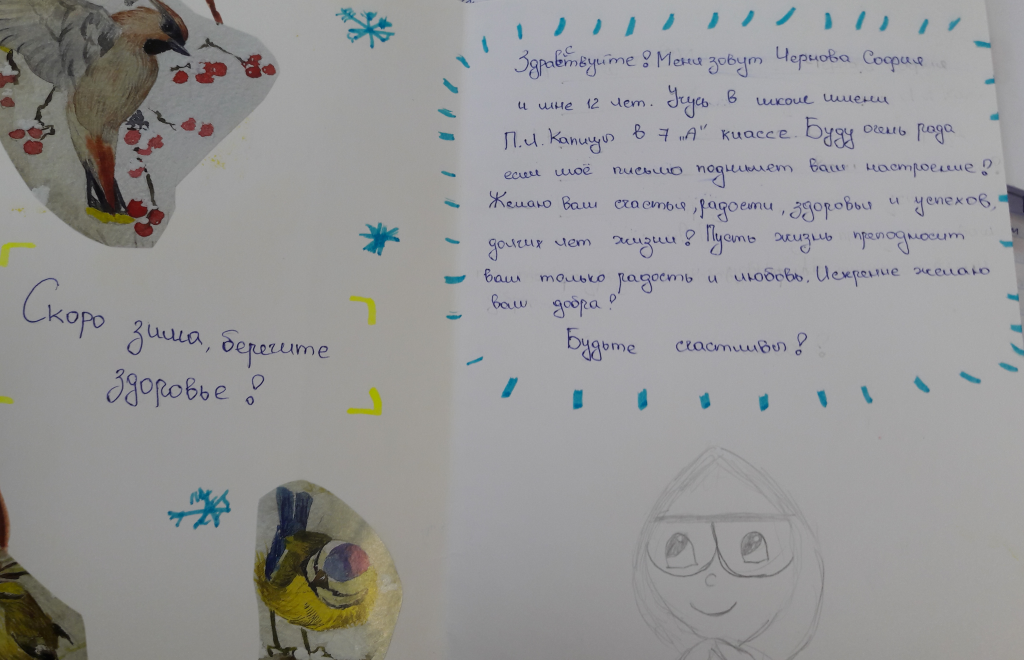 Скоро зима, берегите
здоровье!
Здравствуйте! Меня зовут Чернова София
и мне 12 лет. Учусь в школе имени
П.Л. Капицы в 7 „А" классе. Буду очень рада
если моё письмо поднимет вам настроение!
Желаю вам счастья, радости, здоровья и успехов,
долгих лет жизни! Пусть жизнь преподносит
вам только радость и любовь. Искренне желаю
вам добра!
Будьте счастливы!